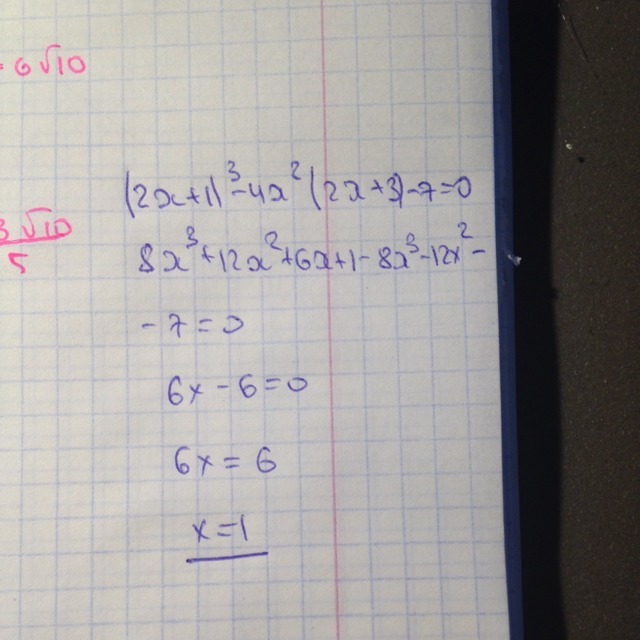 = 6√10
(2x+1)³-4x²(2x+3)-7=0
3√10/5
8x³+12x²+6x+1-8x³-12x²-
-7=0
6x-6=0
6x=6
x=1